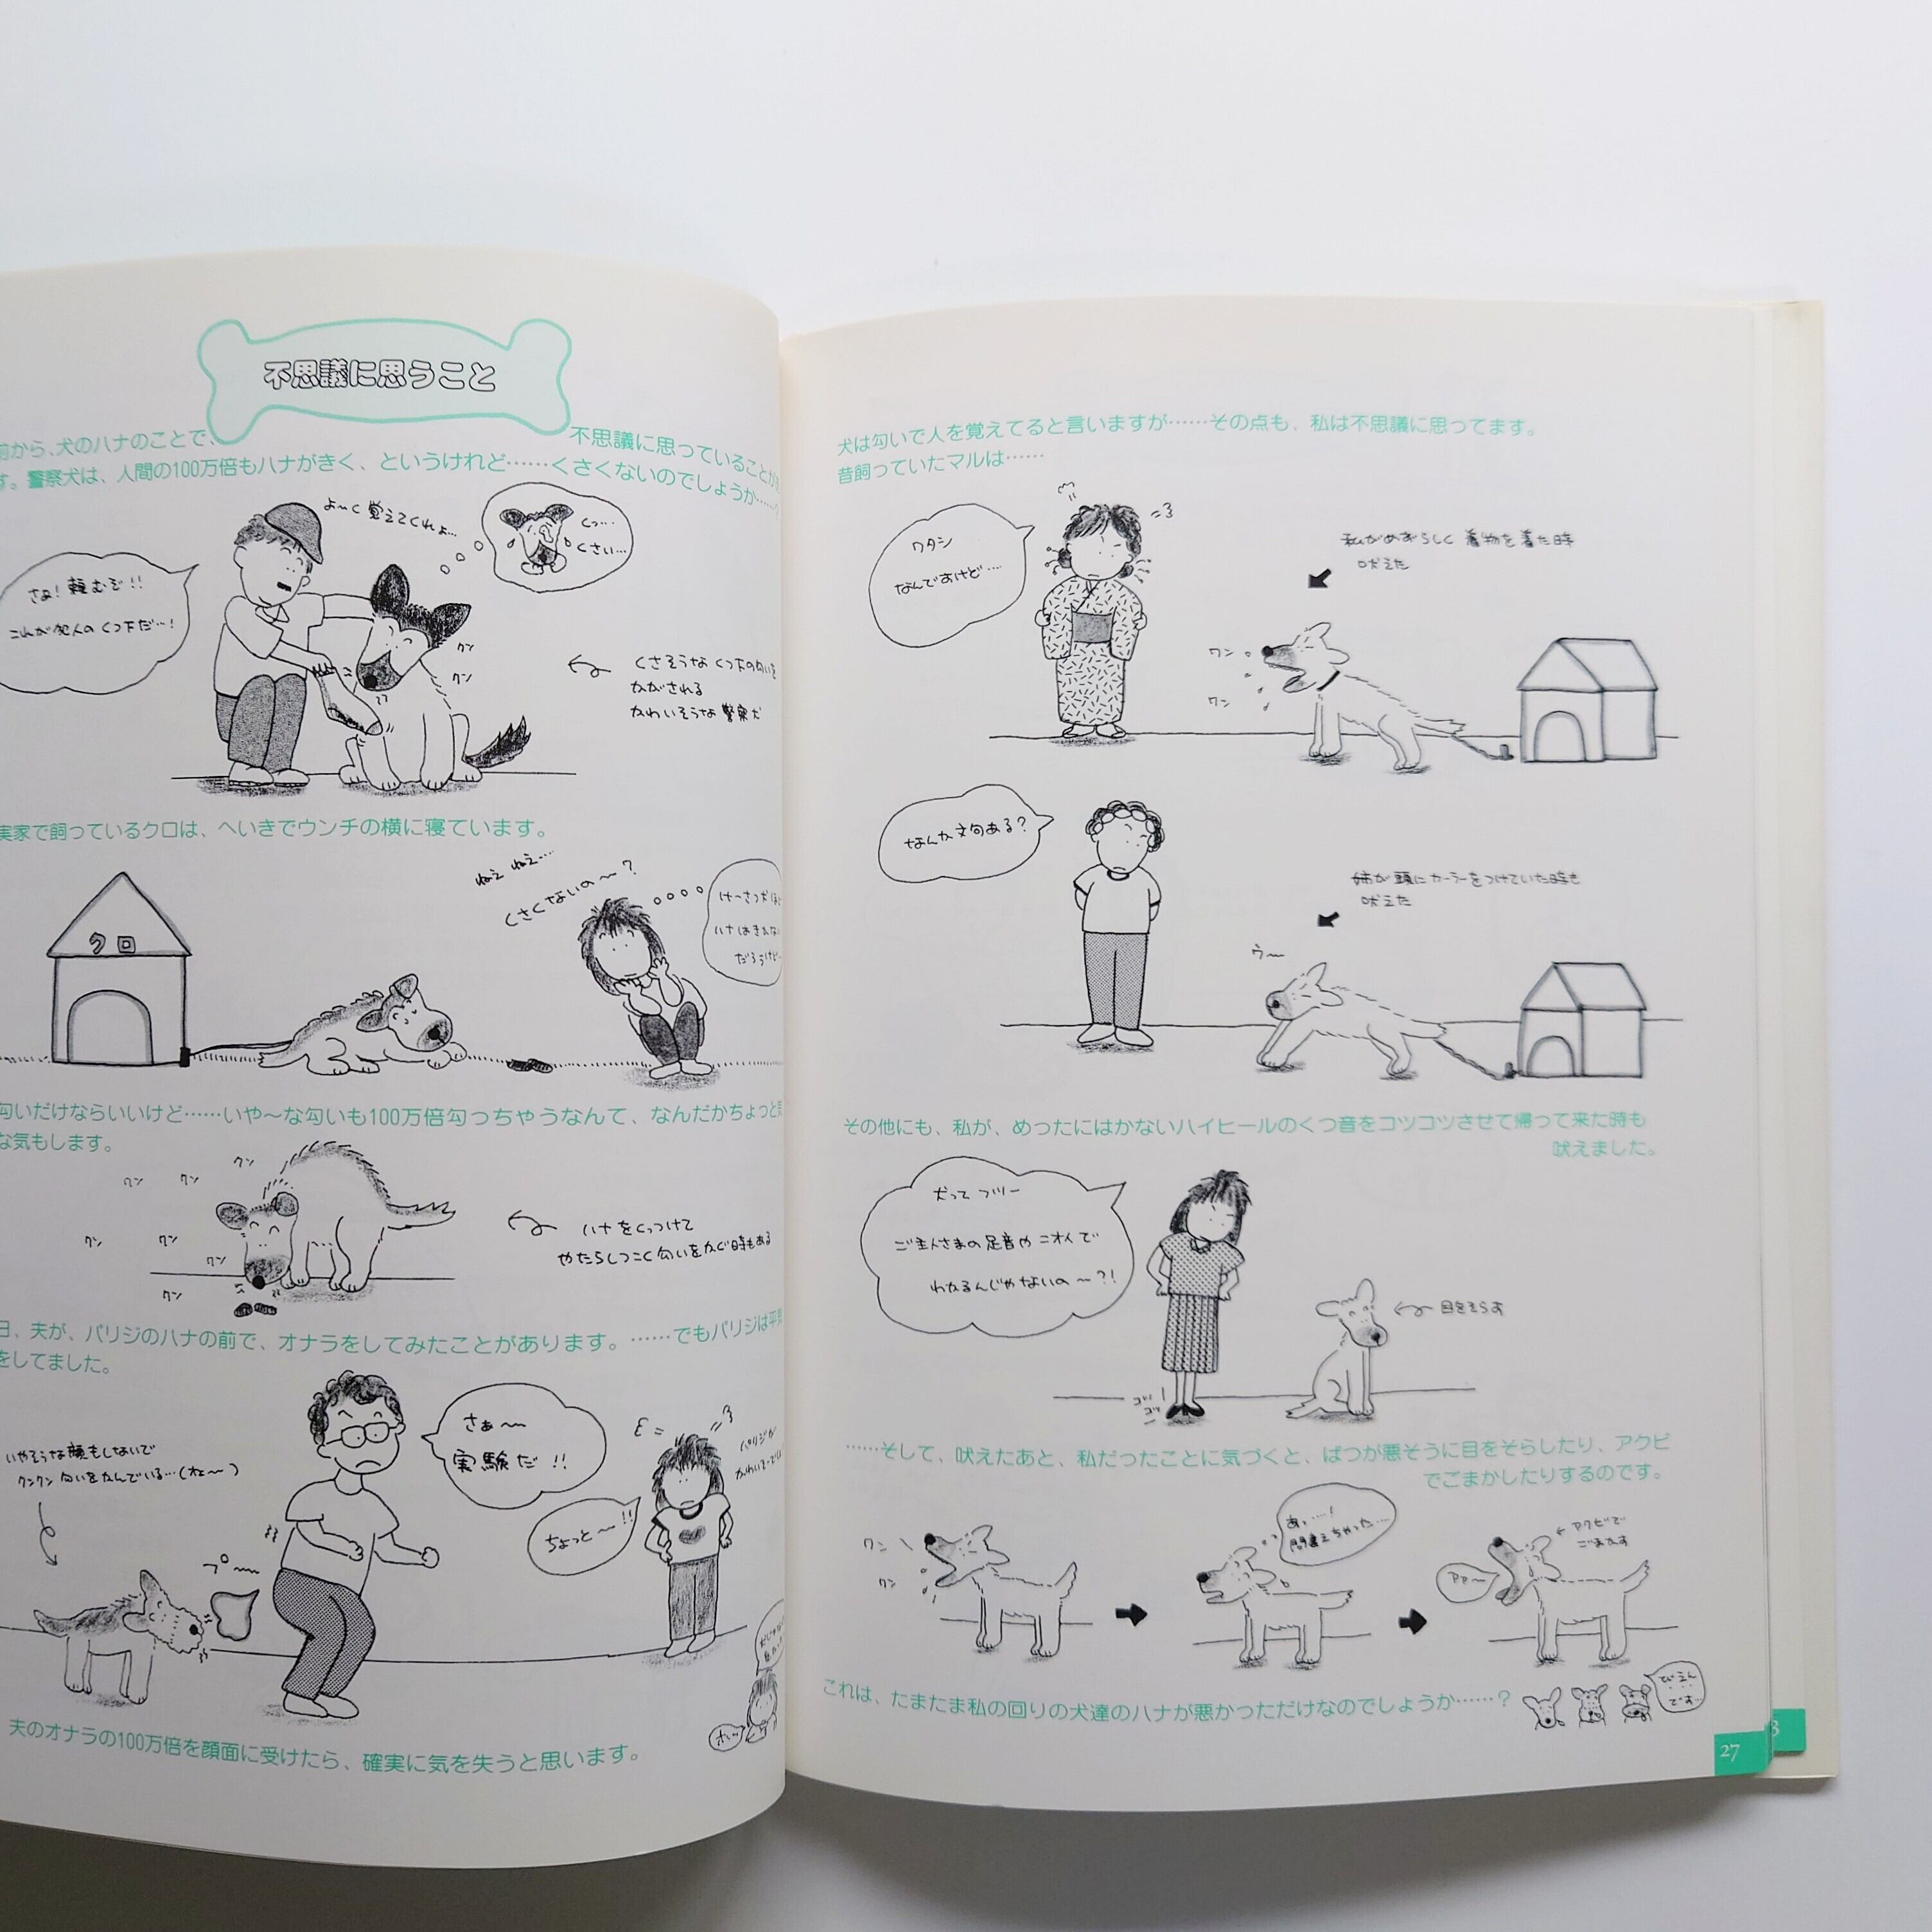 不思議に思うこと
前から、犬のハナのことで、不思議に思っていることが
す。警察犬は、人間の100万倍もハナがきく、というけれど……くさくないのでしょうか……?
よ〜く覚えてくれよ…
くっ…
くさい…
さぁ!頼むぞ!!
これが犯人のくつ下だ…!
クン
クン
くさそうなくつ下の匂いを
かがされる
かわいそうな警察犬
実家で飼っているクロは、へいきでウンチの横に寝ています。
ねぇ ねぇ…
くさくないの〜?
けーさつ犬ほど
ハナはきかない
だろうけど…
クロ
匂いだけならいいけど……いや〜な匂いも100万倍匂っちゃうなんて、なんだかちょっと気
な気もします。
クン
クン
クン
クン
クン
クン
クン
ハナをくっつけて
やたらしつこく匂いをかぐ時もある
日、夫が、パリジのハナの前で、オナラをしてみたことがあります。……でもパリジは平気
をしてました。
さぁ〜
実験だ!!
いやそうな顔もしないで
クンクン匂いをかんでいる…(ねぇ〜)
ちょっと〜!!
パリジが
プ〜
夫のオナラの100万倍を顔面に受けたら、確実に気を失うと思います。
犬は匂いで人を覚えてると言いますが……その点も、私は不思議に思ってます。
昔飼っていたマルは……
ワタシ
なんですけど…
私がめずらしく着物を着た時
吠えた
ワン
ワン
なんか文句ある?
姉が頭にカーラーをつけていた時も
吠えた
ウ〜
その他にも、私が、めったにはかないハイヒールのくつ音をコツコツさせて帰って来た時も
吠えました。
犬って フツー
ご主人さまの足音や ニオイで
わかるんじゃないの〜?!
目をそらす
コツ
コツ
……そして、吠えたあと、私だったことに気づくと、ばつが悪そうに目をそらしたり、アクビ
でごまかしたりするのです。
ワン
ワン
あっ…!
間違えちゃった…
アクビで
ごまかす
アァ〜
これは、たまたま私の回りの犬達のハナが悪かっただけなのでしょうか……?
びえん
です
27